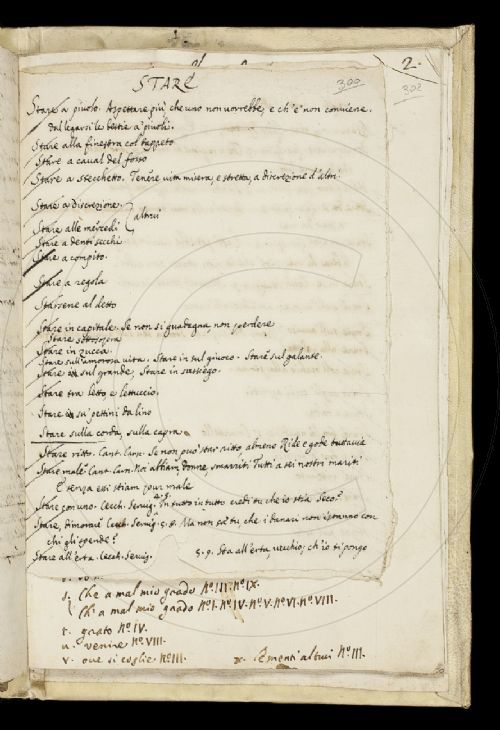 2.
STARE
300
302
Stare a piuolo. Aspettare più che uno non vorrebbe, e ch'e' non conviene.
Dal legarsi le bestie a' piuoli.
Stare alla finestra col tappeto
Stare a caual del fosso
Stare a stecchetto. Tenere uita misera, e stretta, a discrezione d'altri.
Stare a discrezione
altrui
Stare alle mercedi
Stare a denti secchi
Stare a compito.
Stare a regola
Starsene al detto
Stare in capitale. Se non si guadagna non perdere
Stare sottosopra
Stare in zucca
Stare sull'amorosa uita. Stare in sul giuoco. Stare sul galante.
Stare in sul grande, Stare in sussiego.
Stare tra letto e lettuccio.
Stare su' pettini da lino
Stare sulla corda, sulla capra
Stare ritto. Cant. Carn. Se non può star ritto, almeno Ride e gode tuttauia
Stare male. Cant. Carn. Noi abbiam, donne, smarriti Tutti a sei nostri mariti
E senza essi stiam pur male
Stare con uno. Cecch. Seruig. In tutto in tutto credi tu che io stia Seco?
Stare, dimorare. Cecch. Seruig. 5. 8. Ma non sai tu, che i danari non istanno con
chi gli spende?
Stare all'erta. Cecch. Seruig. 5. 9. Sta all'erta, vecchio, ch'io ti pongo
s. Che a mal mio grado No. III. No. IX.
Ch'a mal mio grado No. I. No. IV. No. V. No. VI. No. VIII.
t. grato No. IV.
u. venire No. VIII.
v. oue si coglie No. III. x. altrui No. III.